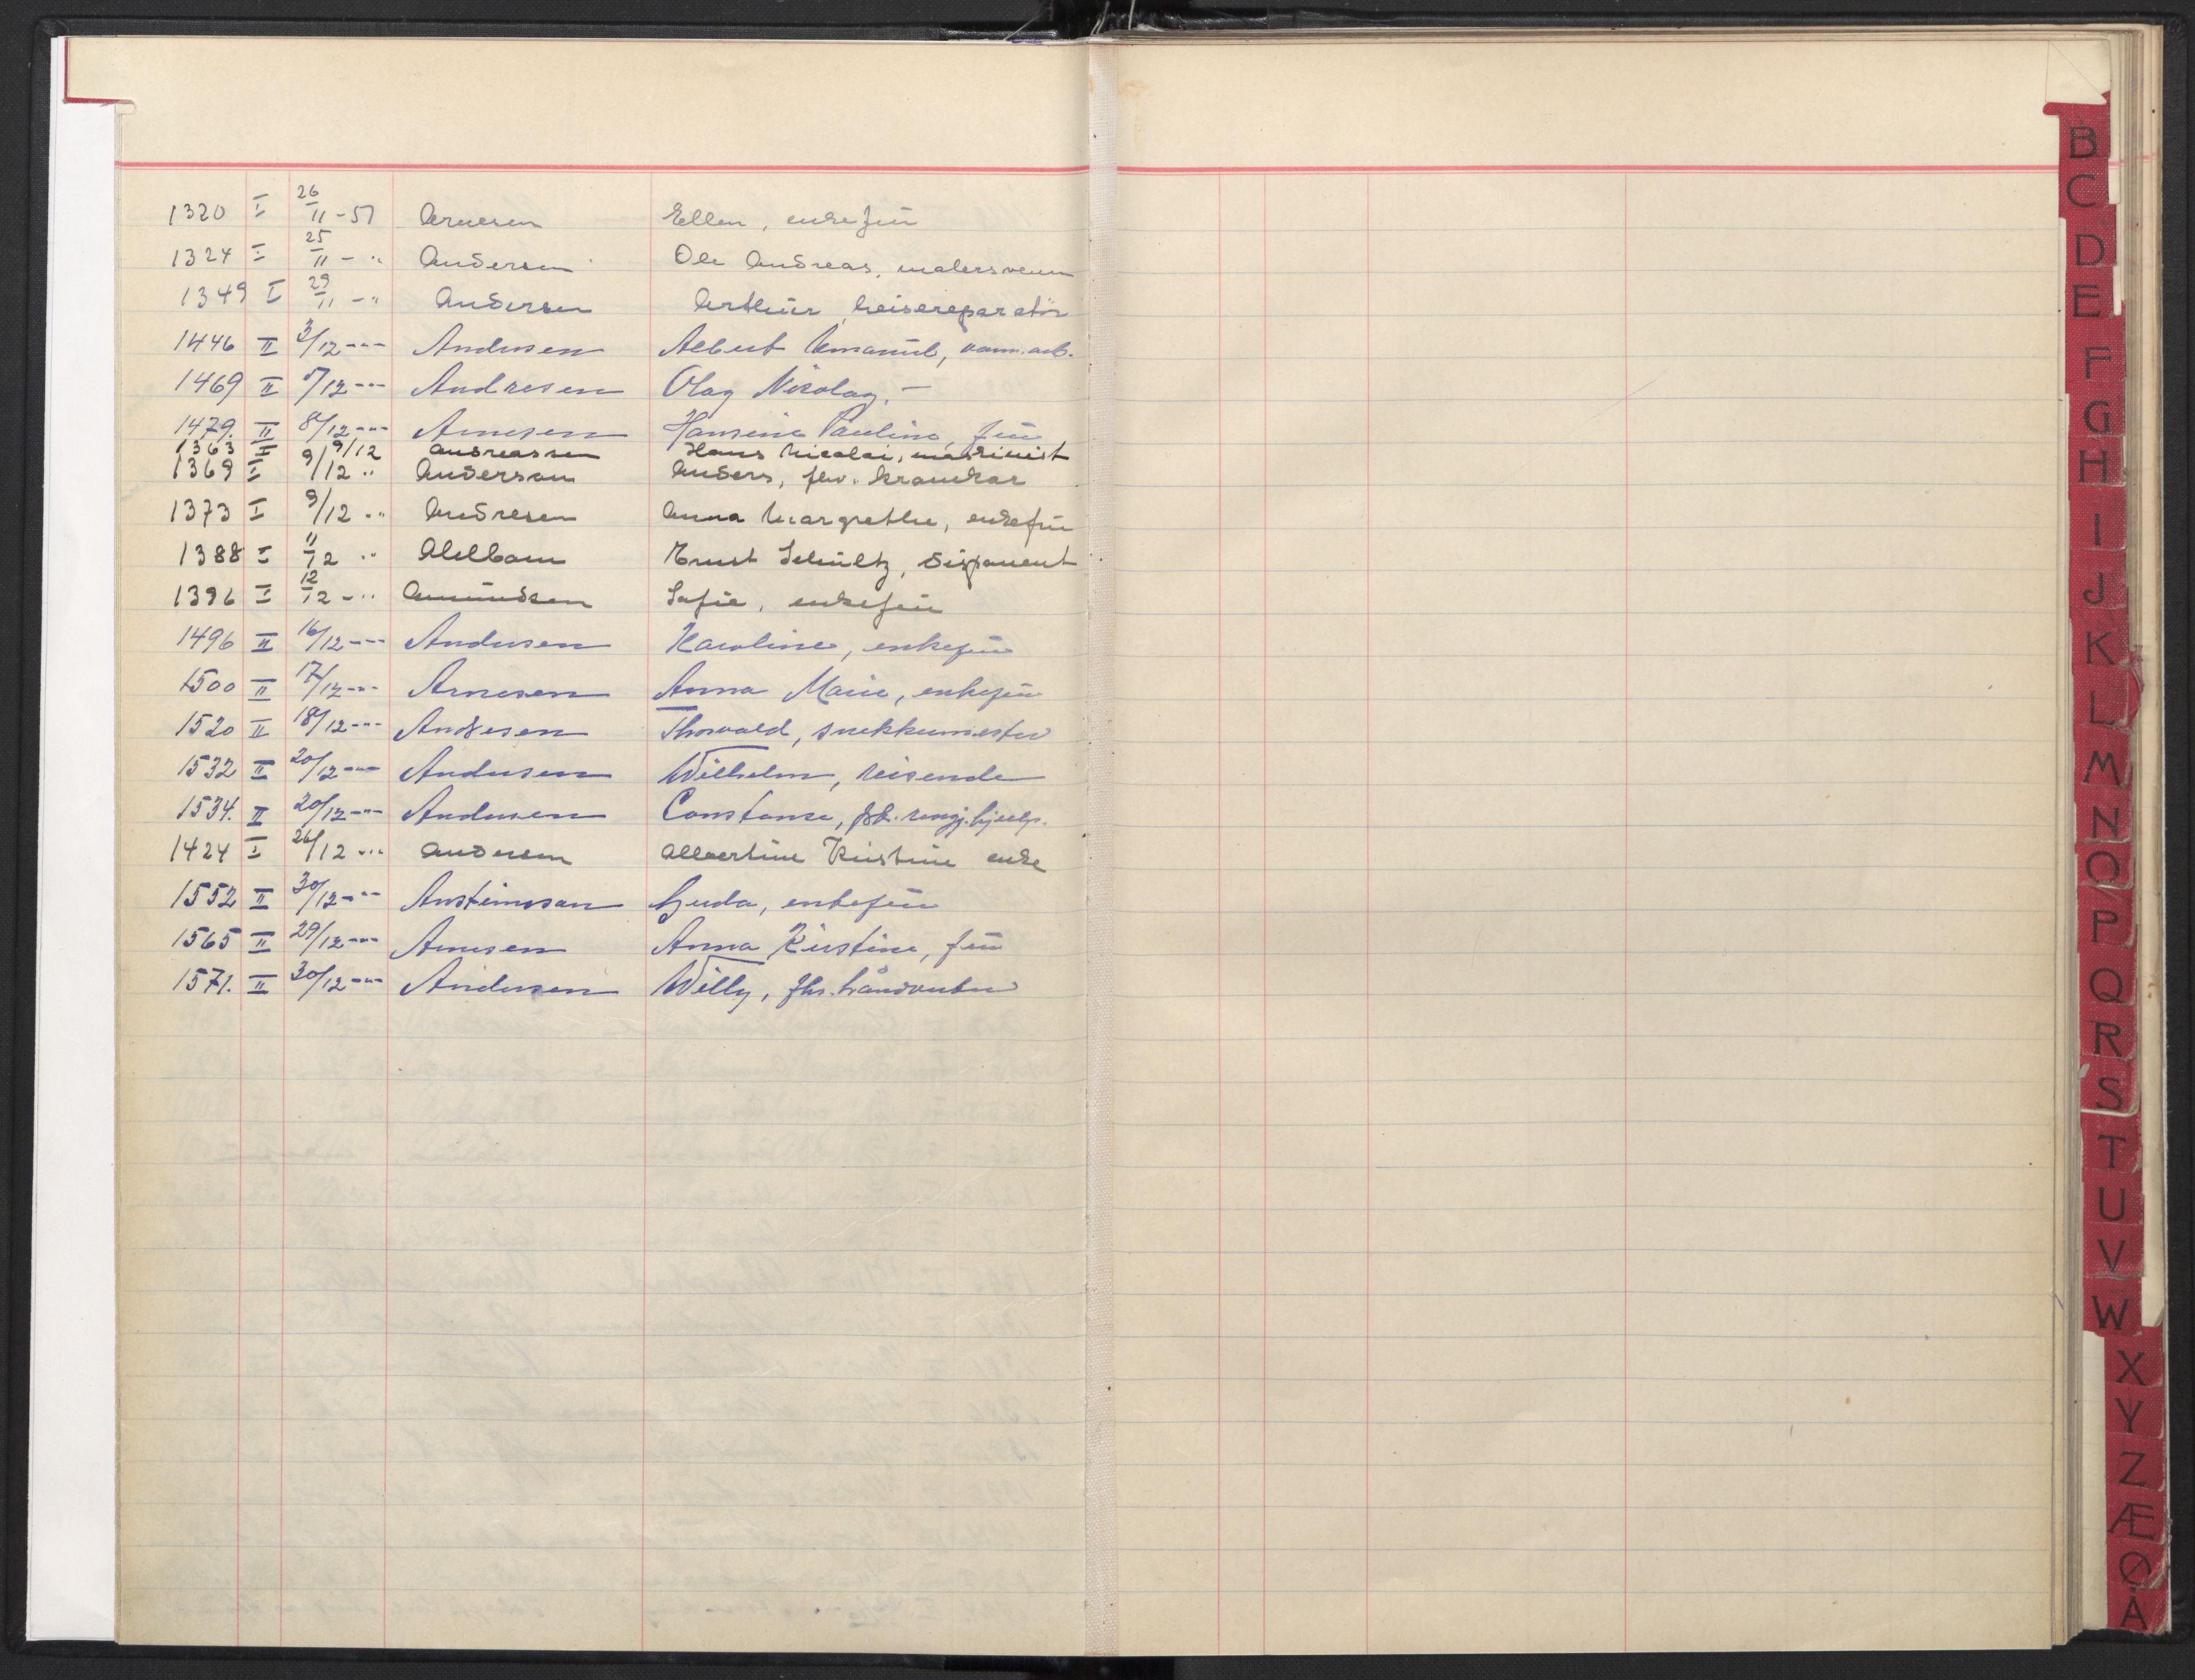 1320 I 26/11-51 Arnesen Ellen, enkefrü
1324 I 25/11 - " Andersen Ole Andreas, malersvenn
1349 I 29/11 - " Andersen Arthür, heisereparatør
1446 II 3/12 -"- Andersen Albert Emanuel, vann.arb.
1469 II 5/12 -"- Andresen Olag Nikolay. -
1479. II 8/12 -"- Arnesen Hansine Pauline, frü
1363 I 9/12 Andreassen Hans Nicolai, maskinist
1369 I 9/12 " Anderson Anders, fhv.
1373 I 9/12 - " Andresen Anna Margrethe, enkefrü
1388 I 11/12 " Ahlbom Ernst Schültz, disponent
1396 I 12/12 - " Amündsen Sofie, enkefrü
1496 II 16/12 -"- Andersen Karoline, enkefrü
1500 II 17/12 -"- Arnesen Anna Marie, enkefrü
1520 II 18/12 -"- Andersen Thorvald, snekkermester
1532 II 20/12 -"- Andersen Wilhelm, reisende
1534. II 20/12 -"- Andersen Constanse, fsk. rengj.hjelp.
1424 I 26/12 -" Andersen Albertine Kristine enke
1552 II 30/12 -"- Gerda, enkefrü
1565 II 29/12 -"- Arnesen Anna Kirstine, frü
1571. II 30/12 -"- Andersen Willy, fhv. håndverker
B
C
D
E
F
G
H
I
J
K
L
M
N
O
P
Q
R
S
T
U
V
W
X
Y
Z
Æ
Ø
Å